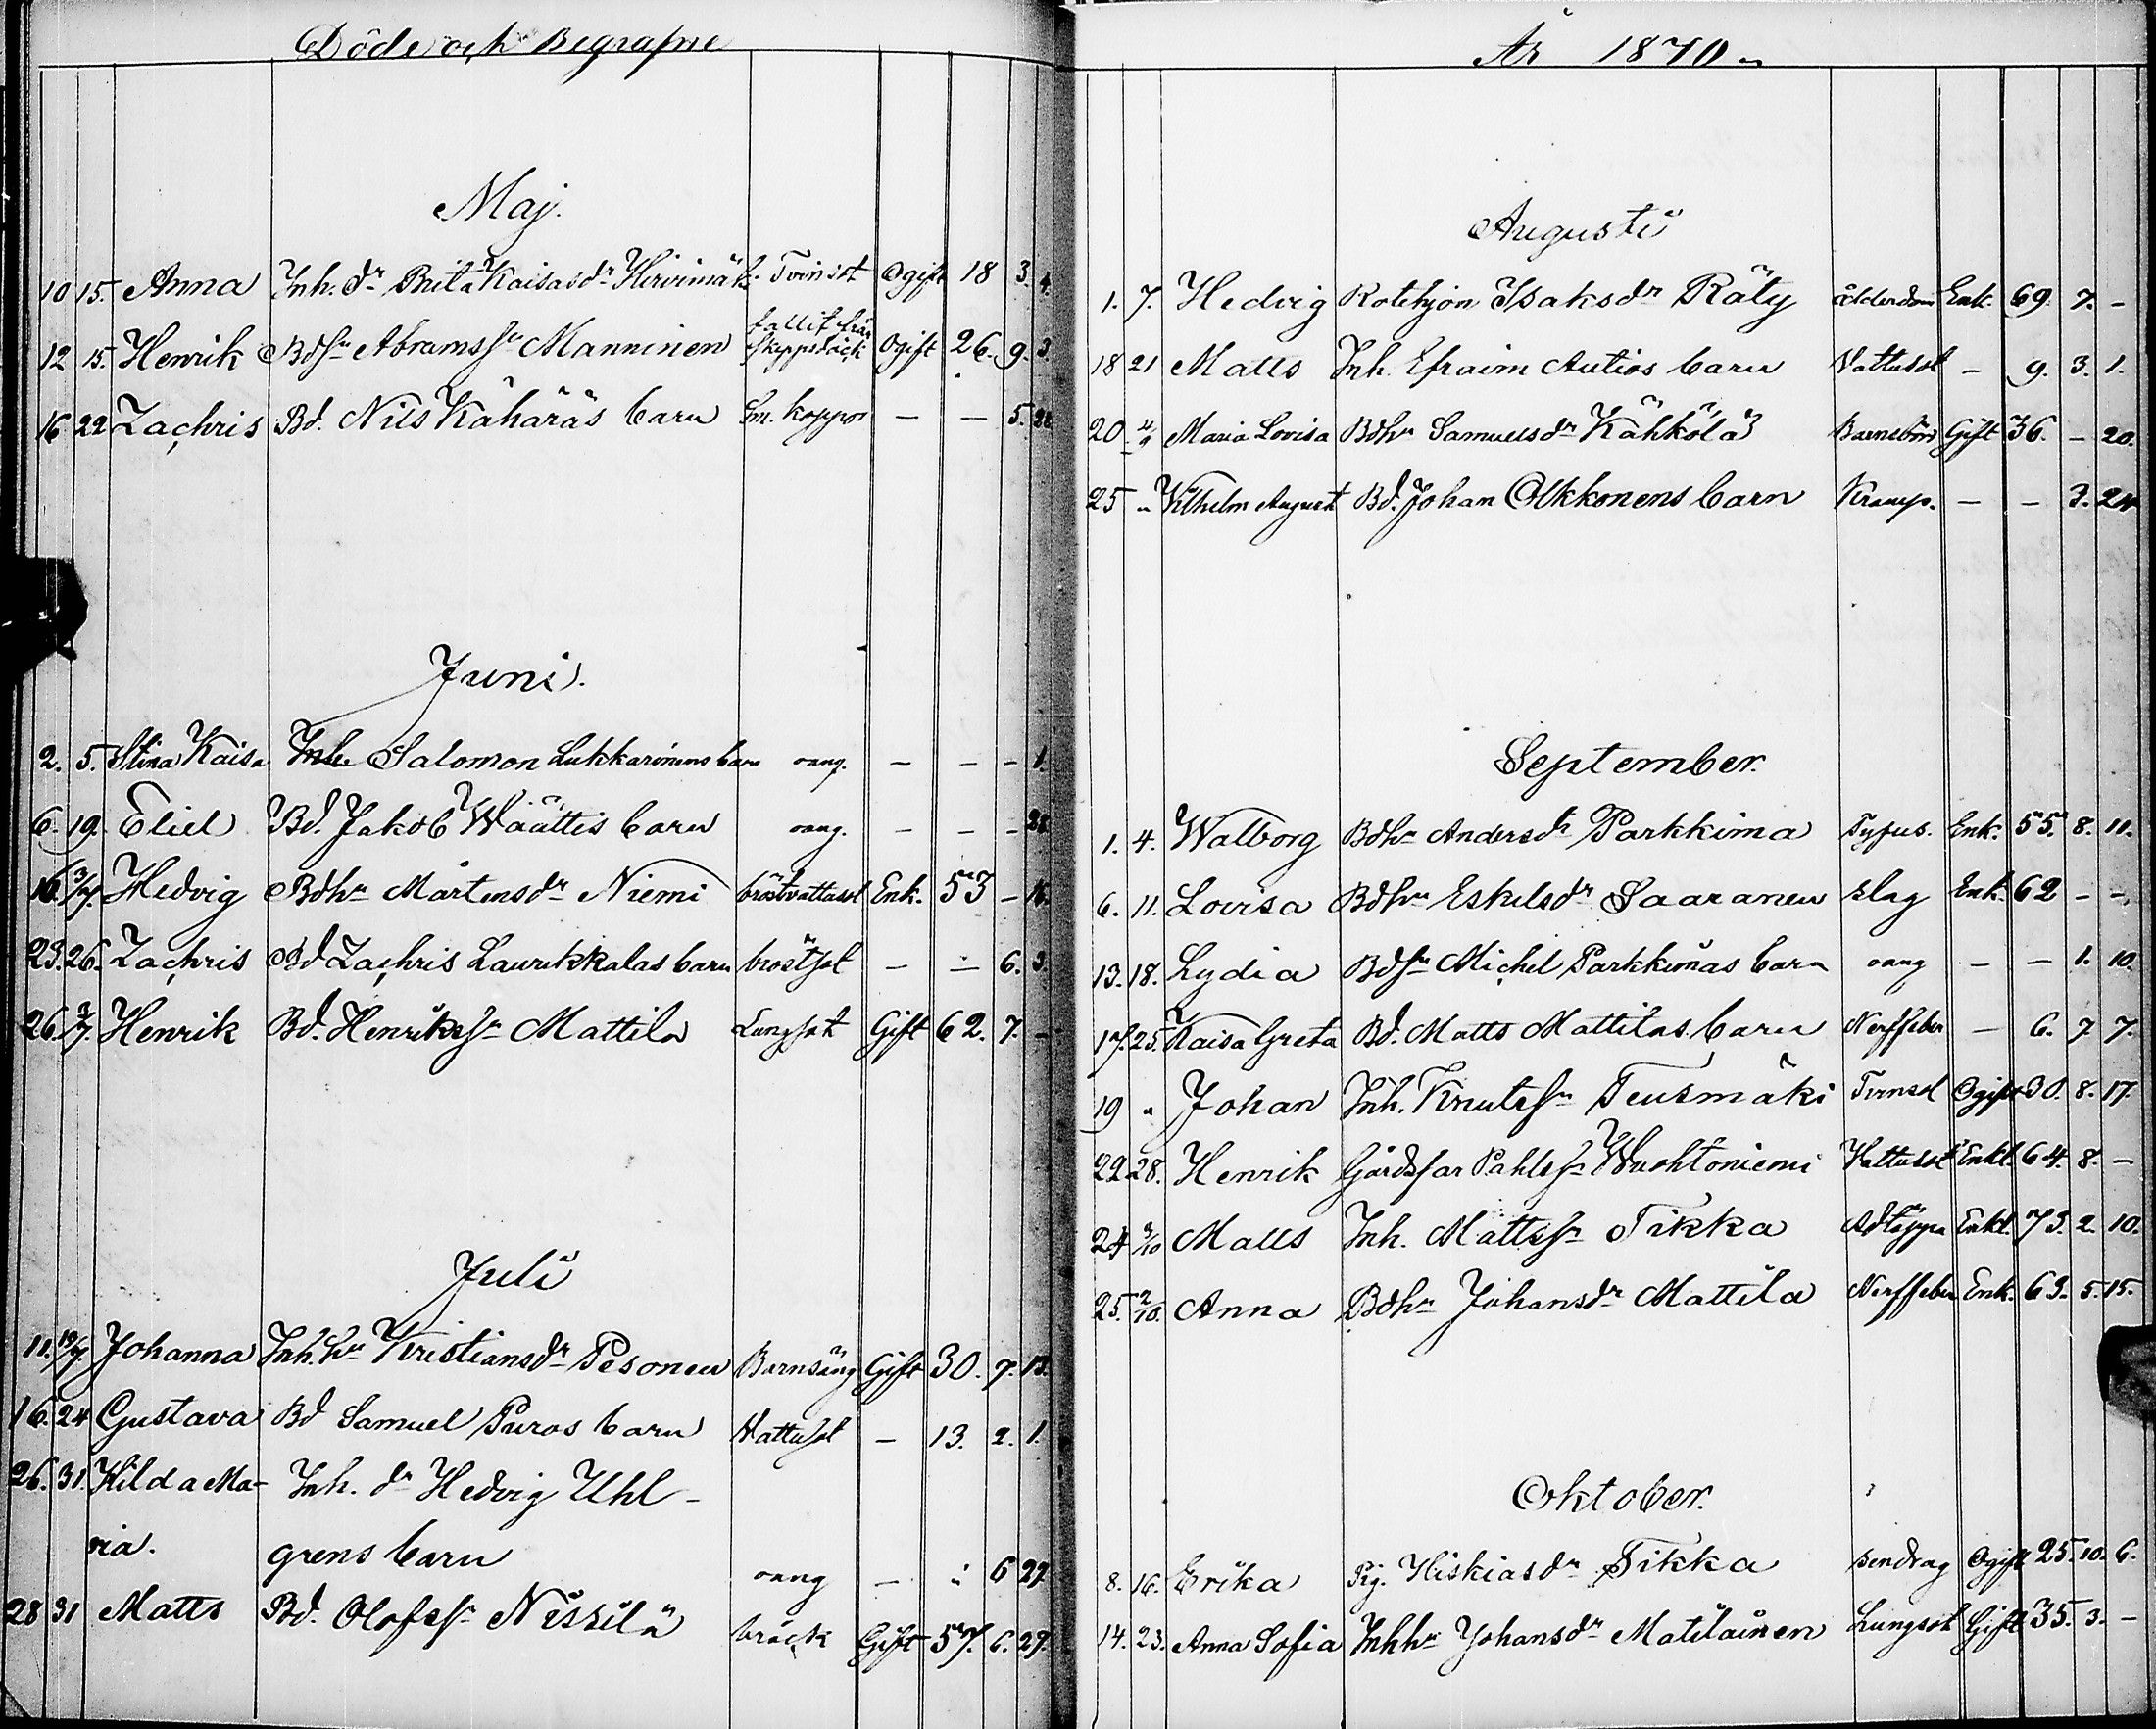 Döde och Begrafne
Maj.
10 15. Anna Inh. dr Brita Kaisasdr Hirvimäki Tvinsot Ogift 18 3. 4.
fallit från
12 15. Henrik Bdsn Abramssn Manninen skeppsdäck Ogift 26. 9. 3.
16 22 Zachris Bd. Nils Kähäräs barn Sm. koppor — — 5. 28
Juni.
2. 5. Stina Kaisa Inh. Salomon Lukkarinens barn oang. — — — 1.
6. 19. Eliel Bd. Jakob Wäättis barn oang. — — — 28
16. 3/7. Hedvig Bdhu Mårtensdr Niemi bröstvattusot Enk. 53 — 16.
23. 26. Zachris Bd Zachris Laurikkalas barn bröstsot — — 6. 3.
26. 3/7. Henrik Bd. Henrikssn Mattila Lungsot Gift 62. 7. —
Juli
11. 19/7. Johanna Inh. hu Kristiansdr Pesonen Barnsäng Gift 30. 7. 13.
16. 24 Gustava Bd Samuel Puros barn Vattusot — 13. 2. 1.
26. 31. Hilda Ma- Inh. dr Hedvig Uhl-
ria. grens barn oang — " 6 27.
28 31 Matts Bd. Olofssn Nissilä bråck Gift 57. 6. 29.
År 1870.
Augusti
1. 7. Hedvig Rotehjon Isaksdr Räty ålderdom Enk. 69. 7. —
18 21 Matts Inh. Efraim Autios barn Vattusot — 9. 3. 1.
20 4/9 Maria Lovisa Bdhu Samuelsdr Kähkölä Barnsbörd Gift 36. — 20.
25 " Wilhelm August Bd. Johan Okkonens barn Kramp. — — 3. 24
September.
1. 4. Walborg Bdhu Andersdr Parkkima Tyfus. Enk. 55. 8. 11.
6. 11. Lovisa Bdhu Eskilsdr Saaranen slag Enk. 62 — —
13. 18. Lydia Bdsn Michel Parkkimas barn oang — — 1. 10.
17. 25. Kaisa Greta Bd. Matts Mattilas barn Nerffeber — 6. 7 7.
19 " Johan Inh. Knutssn Teusmäki Tvinsot Ogift 30. 8. 17.
22 28. Henrik Gårdsfar Pahlssn Wuohtoniemi Vattusot Enkl. 64. 8. —
24 2/10 Matts Inh. Mattssn Tikka Enkl. 73. 2. 10.
25. 2/10. Anna Bdhu Johansdr Mattila Nerffeber Enk. 63. 5. 15.
Oktober.
8. 16. Erika Pig. Hiskiasdr Tikka sendrag Ogift 25. 10. 6.
14. 23. Anna Sofia Inhhu Johansdr Matilainen Lungsot Gift 35. 3. —